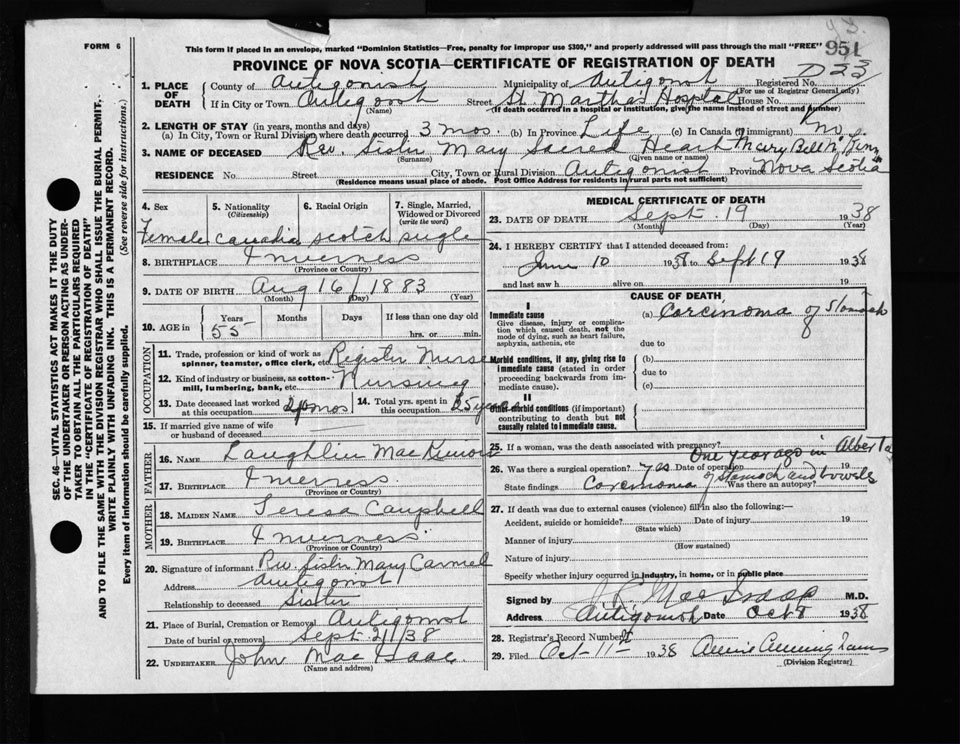 FORM 6
This form if placed in an envelope, marked "Dominion Statistics—Free, penalty for improper use $300," and properly addressed will pass through the mail "FREE"
951
PROVINCE OF NOVA SCOTIA—CERTIFICATE OF REGISTRATION OF DEATH
1. PLACE OF DEATH
County of Antigonish Municipality of Antigonish Registered No.
(For use of Registrar General only)
If in City or Town Antigonish Street St. Martha's Hospital House No.
(Name) (If death occurred in a hospital or institution, give the name instead of street and number)
2. LENGTH OF STAY (in years, months and days)
(a) In City, Town or Rural Division where death occurred 3 mos. (b) In Province Life (c) In Canada (if immigrant) no.
3. NAME OF DECEASED Rev. Sister Mary Sacred Heart Mary Bell
(Surname) (Given name or names)
RESIDENCE No. Street City, Town or Rural Division Antigonish Province Nova Scotia
(Residence means usual place of abode. Post Office Address for residents in rural parts not sufficient)
4. Sex 5. Nationality (Citizenship) 6. Racial Origin 7. Single, Married, Widowed or Divorced (write the word)
Female Canadian Scotch single
8. BIRTHPLACE Inverness
(Province or Country)
9. DATE OF BIRTH Aug 16 / 1883
(Month) (Day) (Year)
10. AGE in Years Months Days If less than one day old
55 hrs. or min.
OCCUPATION
11. Trade, profession or kind of work as spinner, teamster, office clerk, etc. Register Nurse
12. Kind of industry or business, as cotton-mill, lumbering, bank, etc. Nursing
13. Date deceased last worked at this occupation mos 14. Total yrs. spent in this occupation 25 years
15. If married give name of wife or husband of deceased
FATHER
16. NAME Laughlin MacKinnon
17. BIRTHPLACE Inverness.
(Province or Country)
MOTHER
18. MAIDEN NAME Teresa Campbell
19. BIRTHPLACE Inverness
(Province or Country)
20. Signature of informant Rev. Sister Mary Carmel
Address Antigonish
Relationship to deceased Sister
21. Place of Burial, Cremation or Removal Antigonish
Date of burial or removal Sept 21/38
22. UNDERTAKER John MacIsaac.
(Name and address)
MEDICAL CERTIFICATE OF DEATH
23. DATE OF DEATH Sept. 19 1938
(Month) (Day) (Year)
24. I HEREBY CERTIFY that I attended deceased from:
June 10 1938 to Sept 19 1938
and last saw h alive on 19
CAUSE OF DEATH
I
Immediate cause
Give disease, injury or complication which caused death, not the mode of dying, such as heart failure, asphyxia, asthenia, etc
(a) Corcinoma of Stomach
due to
Morbid conditions, if any, giving rise to immediate cause (stated in order proceeding backwards from immediate cause).
(b)
due to
(c)
II
Other morbid conditions (if important) contributing to death but not causally related to immediate cause.
25. If a woman, was the death associated with pregnancy?
One year ago in Alberta
26. Was there a surgical operation? yes Date of operation 19
State findings Corcinoma of stomach and bowels Was there an autopsy?
27. If death was due to external causes (violence) fill in also the following:—
Accident, suicide or homicide? Date of injury 19
(State which)
Manner of injury
(How sustained)
Nature of injury
Specify whether injury occurred in industry, in home, or in public place
Signed by M.D.
Address Antigonish Date Oct 8 1938
28. Registrar's Record Number
29. Filed Oct-11th 1938 Annie Cunningham
(Division Registrar)
SEC. 46—VITAL STATISTICS ACT MAKES IT THE DUTY
OF THE UNDERTAKER OR PERSON ACTING AS UNDER-
TAKER TO OBTAIN ALL THE PARTICULARS REQUIRED
IN THE "CERTIFICATE OF REGISTRATION OF DEATH"
AND TO FILE THE SAME WITH THE DIVISION REGISTRAR WHO SHALL ISSUE THE BURIAL PERMIT.
WRITE PLAINLY WITH UNFADING INK. THIS IS A PERMANENT RECORD.
Every item of information should be carefully supplied.
(See reverse side for instructions.)